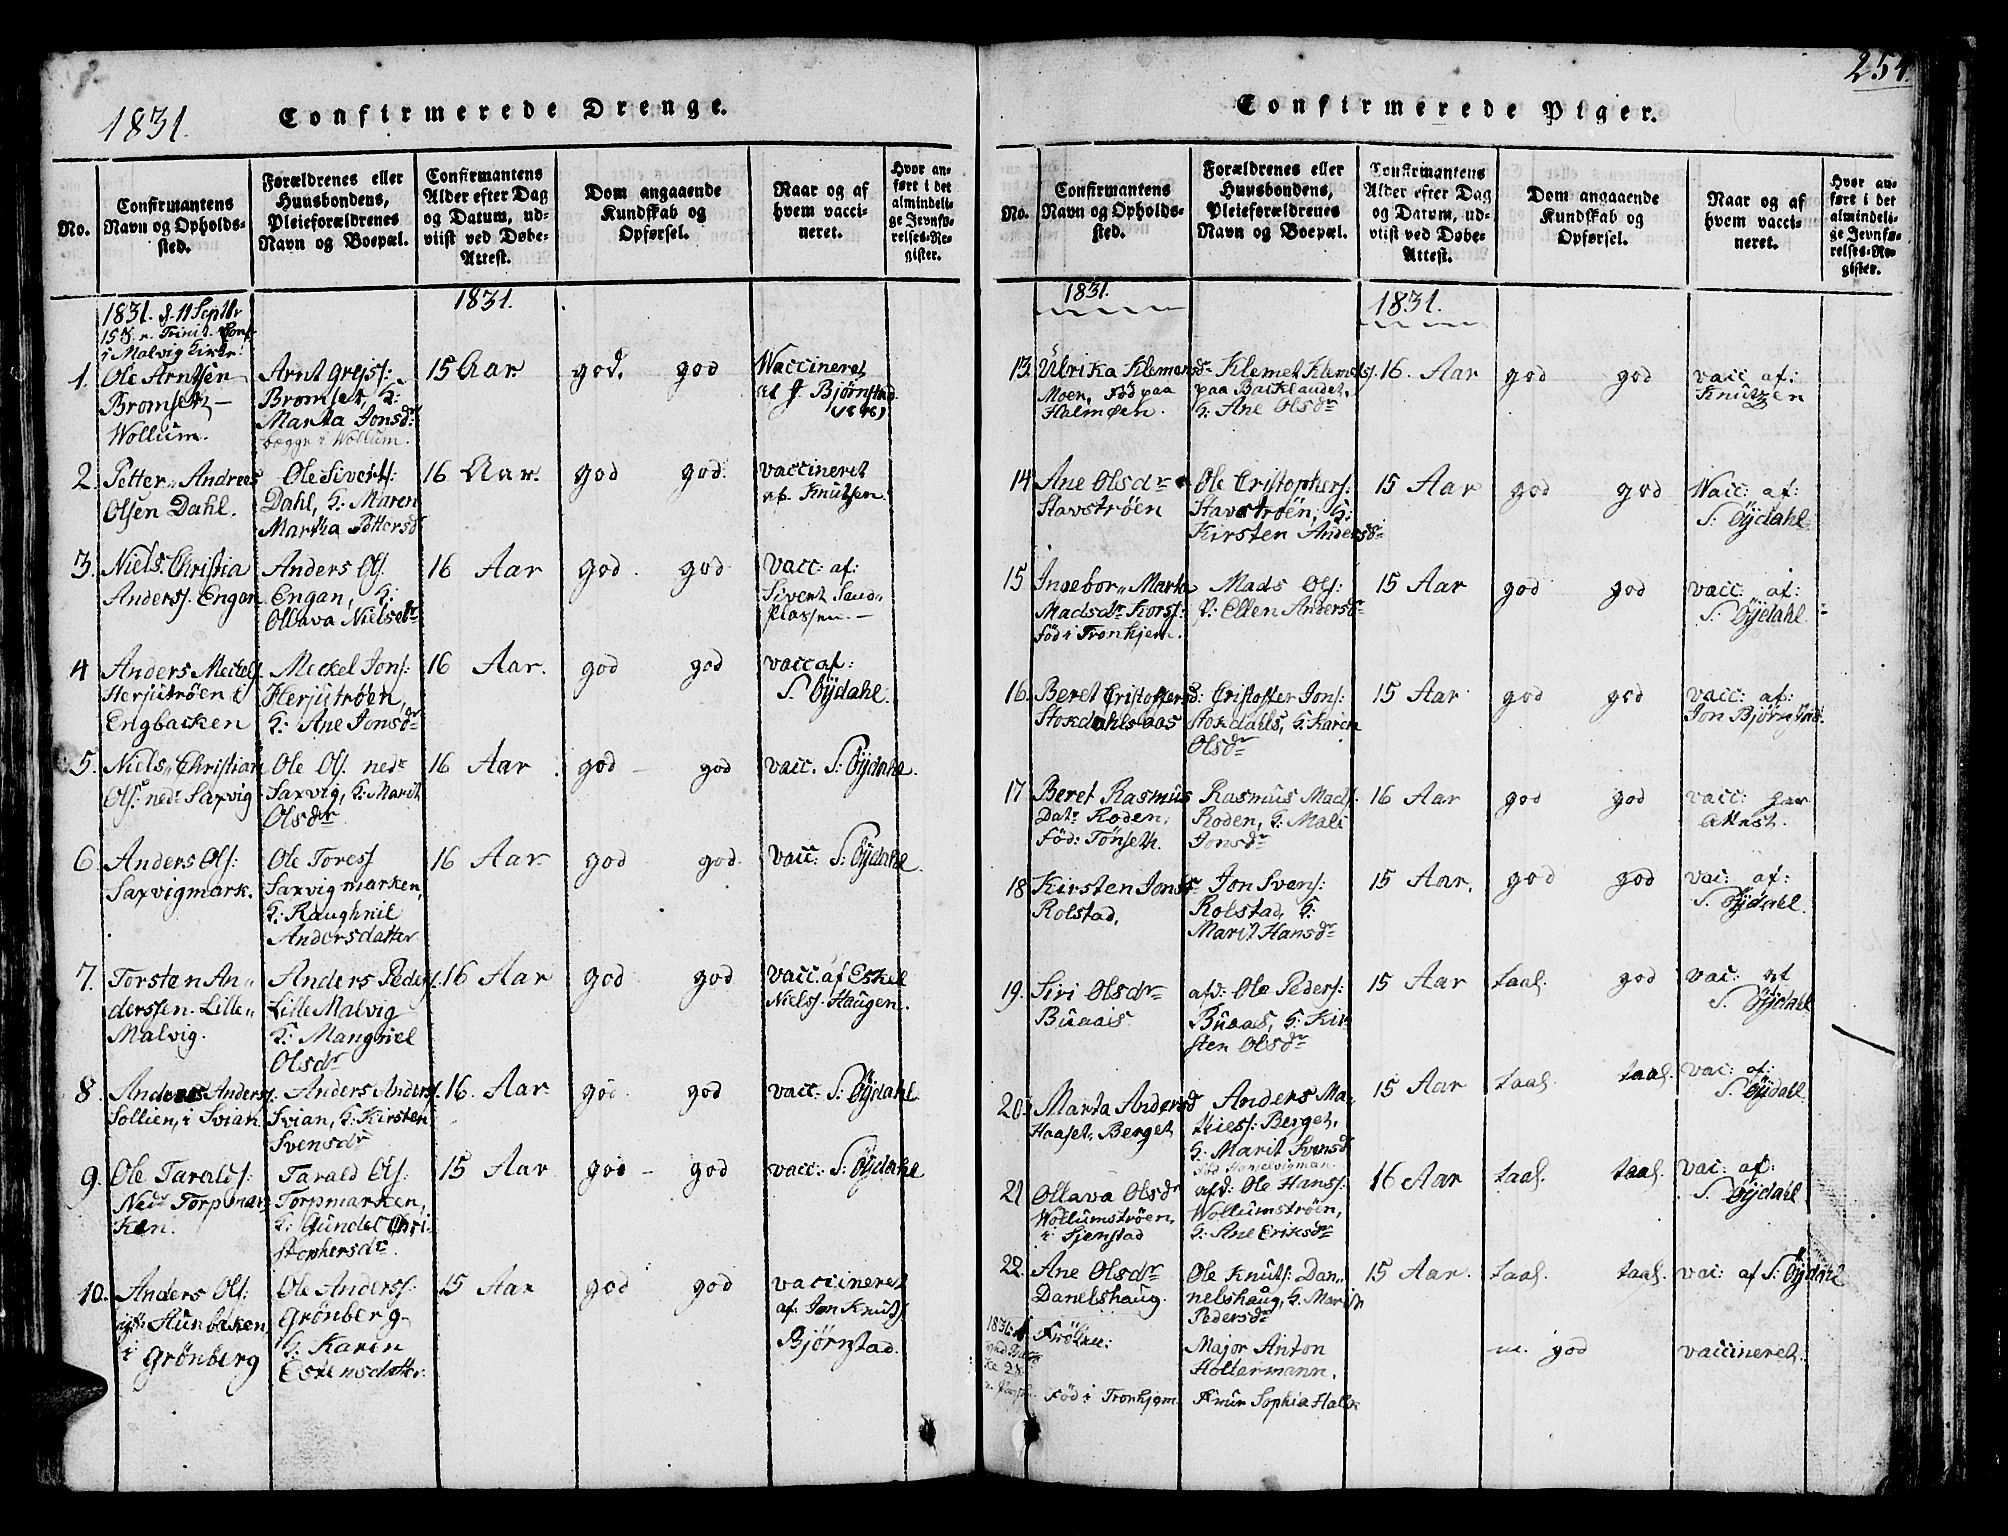 1831.
Confirmerede Drenge.
No.
Confirmantens
Navn og Opholds-
sted.
Forældrenes eller
Huusbondens,
Pleieforældrenes
Navn og Boepæl.
Confirmantens
Alder efter Dag
og Datum, ud-
viist ved Døbe-
Attest.
Dom angaaende
Kundskab og
Opførsel.
Naar og af
hvem vacci-
neret.
Hvor an-
ført i det
almindeli-
ge Jevnfø-
relses-Re-
gister.
1831. d. 11 Septbr
i Malvig Kirke!
1831.
1. Ole Arntsen
Bromset
Wollum.
Arnt Grejss:
Bromset, K:
Marta Jonsdr
begge i Wollum.
15 Aar
god. god
Vaccineret
J. Bjørnstad
2. Petter Andreas
Olsen Dahl.
Ole Siverts:
Dahl, K: Maren
Martha Pettersd
16 Aar.
god god.
vaccineret
af. Knutsen.
3. Niels. Christia
Anderss. Engan
Anders Ols.
Engan, K:
Ollava Nielsdr
16 Aar
god. god.
vacc: af:
Sivert Sand-
plassen.—
4 Anders Meckels.
Herjutrøen i
Engbacken
Meckel Jons:
Herjutrøen,
K: Ane Jonsdr
16 Aar.
god god
vacc af:
S. Øydahl.
5. Niels Christian
Ols: nedr Saxvig
Ole Ols. nedr
Saxvig, K: Marit
Olsdr
16 Aar.
god — god
vacc. S: Øydahl.
6. Anders Ols:
Saxvigmark.
Ole Toress
Saxvigmarken,
K: Raughnil
Andersdatter
16 Aar
god god.
vacc: S: Øydahl.
7. Torsten An-
derssen. Lille-
Malvig.
Anders Peders.
Lille Malvig
K: Mangniel
Olsdr
16 Aar
god god
vacc. af Eskel
Nielss. Haugen.
8. Anders Anderss.
Sollien, i Svian
Anders Anderss.
Svian, K: Kirsten
Svensdr
16. Aar
god. god
vacc: S: Øydahl
9. Ole Taralds:
Nedr Torpmar
ken.
Tarald Ols:
Torpmarken,
K: Gundel Chri-
stophersdr.
15 Aar
god — god
vacc: S: Øydahl
10. Anders Ols:
Hunbaken
i Grønberg
Ole Anderss:
Grønberg
K: Karen
Estensdatter
15 Aar
god god
vaccineret
af: Jon Knuts.
Bjørnstad.
254.
Confirmerede Piger.
No.
Confirmantens
Navn og Opholds-
sted.
Forældrenes eller
Huusbondens,
Pleieforældrenes
Navn og Boepæl.
Confirmantens
Alder efter Dag
og Datum, ud-
viist ved Døbe-
Attest.
Dom angaaende
Kundskab og
Opførsel.
Naar og af
hvem vacci-
neret.
Hvor an-
ført i det
almindeli-
ge Jevnfø-
relses-Re-
gister.
1831.
1831.
13. Ulrika Klemensdr
Moen, Fød paa
Halmøen.
Klemet Klemets.
paa Backlandet,
K: Ane Olsdr
16. Aar
god god
vacc af:
Knutzen
14 Ane Olsdr
Stavstrøen
Ole Cristophers:
Stavstrøen, K:
Kirsten Andersdr
15 Aar
god god
Vacc: af:
S: Øydahl
15 Ingebor Marta
Madsdr Kors:
Fød i Tronhjem.
Mads Ols:
K: Ellen Andersdr
15 Aar
god god
vacc: af:
S: Øydahl.
16. Beret Cristoffersd:
Stokdahlsaas
Cristoffer Jons:
Stokdahls, K: Karen
Olsdr
15 Aar
god god
vacc: af:
Jon Bjørnstad.
17 Beret Rasmus
Datr Roden,
Fød: Tønseth.
Rasmus Mads.
Roden, K: Mali
Jonsdr
16 Aar
god god
vacc: har
Attest.
18 Kirsten Jonsdr
Rolstad.
Jon Svens:
Rolstad, K:
Marit Hansdr
15 Aar.
god god
vac: af:
S. Øydahl.
19. Siri Olsdr
Buaais.
afd: Ole Peders:
Buaas, K: Kir
sten Olsdr
15 Aar
taal. god
vac: af
S. Øydahl
20. Marta Andersd
Haaset, Berget
Anders Ma-
thiess: Berget,
K: Marit Svensd
15 Aar
taal. taal.
vac: af:
S: Øydahl
21 Ollava Olsdr
Wollumstrøen,
i Sjenstad
afd: Ole Hans:
Wollumstrøen,
K: Ane Eriksdr
16 Aar
taal. taal.
vac: af:
S. Øydahl
22. Ane Olsdr
Danelshaug.
Ole Knuts: Dan-
nelshaug, K: Marith
Pedersdr
15 Aar.
taal. taal.
vac: af S: Øydahl
Frøken:
Fød i Tronhjem
Major Anton
Holtermann.
Sophia
m. god
vaccineret.